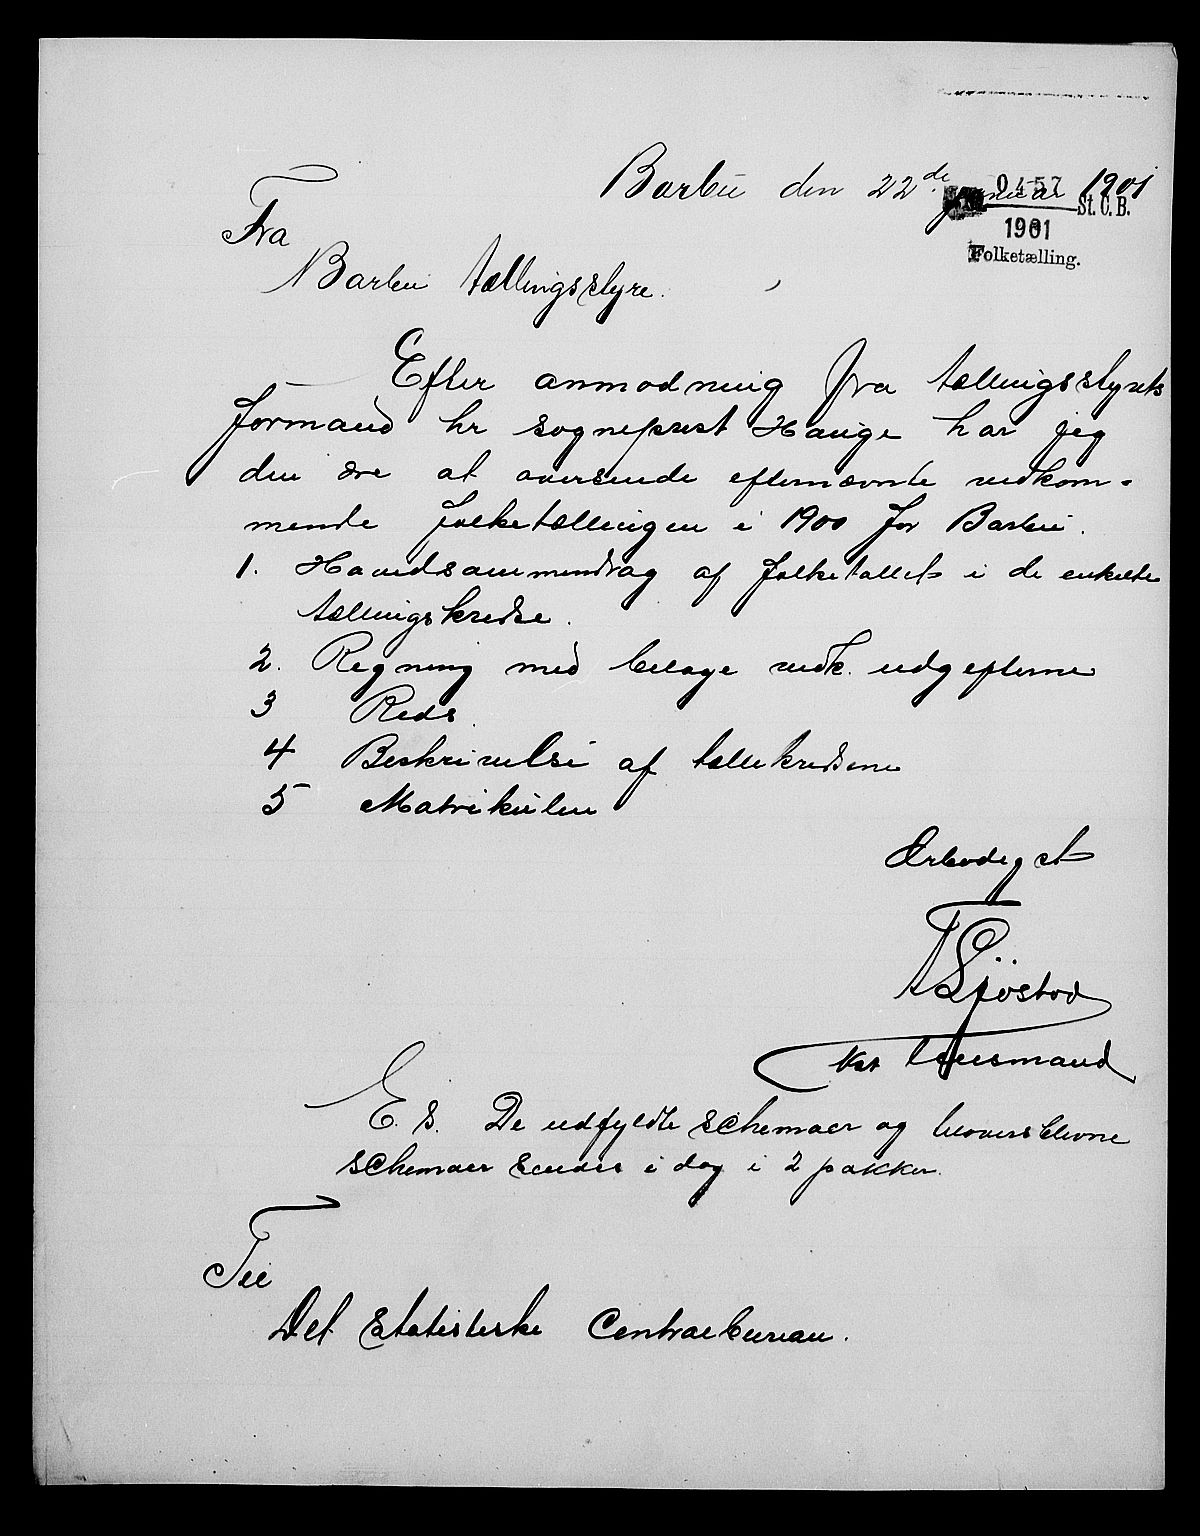 Barbu den 22de januar 1901
0457 St. C. B.
1901
Folketælling.
Fra
Barbu tællingsstyre.
Efter anmodning fra tællingsstyrets
formand hr sogneprest Hauge har jeg
den ære at oversende efternævnte vedkom-
mende folketællingen i 1900 for Barbu.
1. Hovedsammendrag af folketallet i de enkelte
tællingskredse.
2. Regning med bilage vedk. udgifterne
3 Reds.
4 Beskrivelse af tællekredsene
5 Matrikulen
Ærbødigst
T Sjöstod
kst lensmand
E. S. De udfyldte schemaer og tiloversblevne
schemaer sendes i dag i 2 pakker.
Til
Det statistiske Centralbureau.